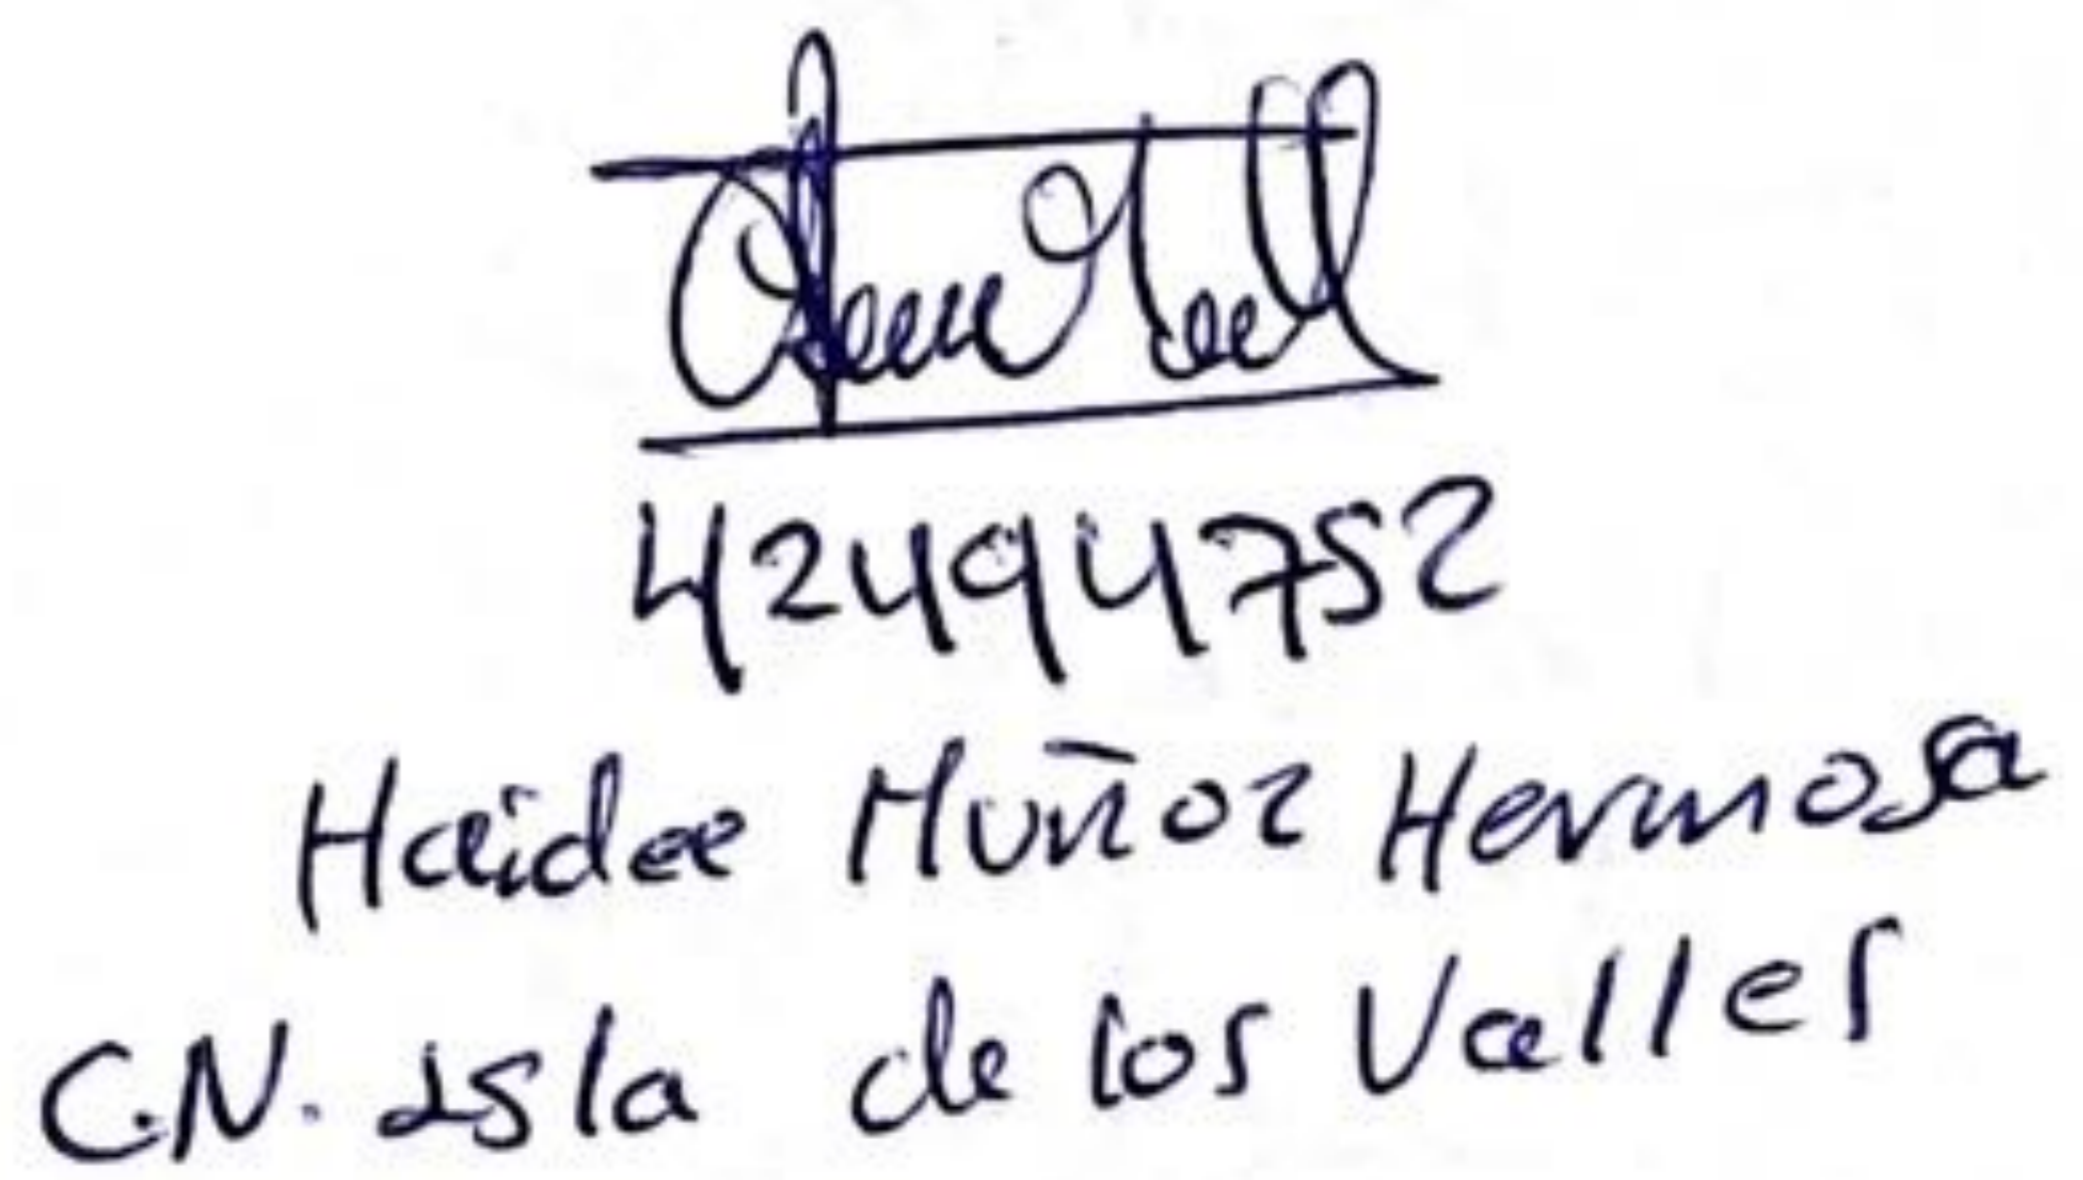 42494752
Haidee Muñoz Hermosa
C.N. Isla de los Valles